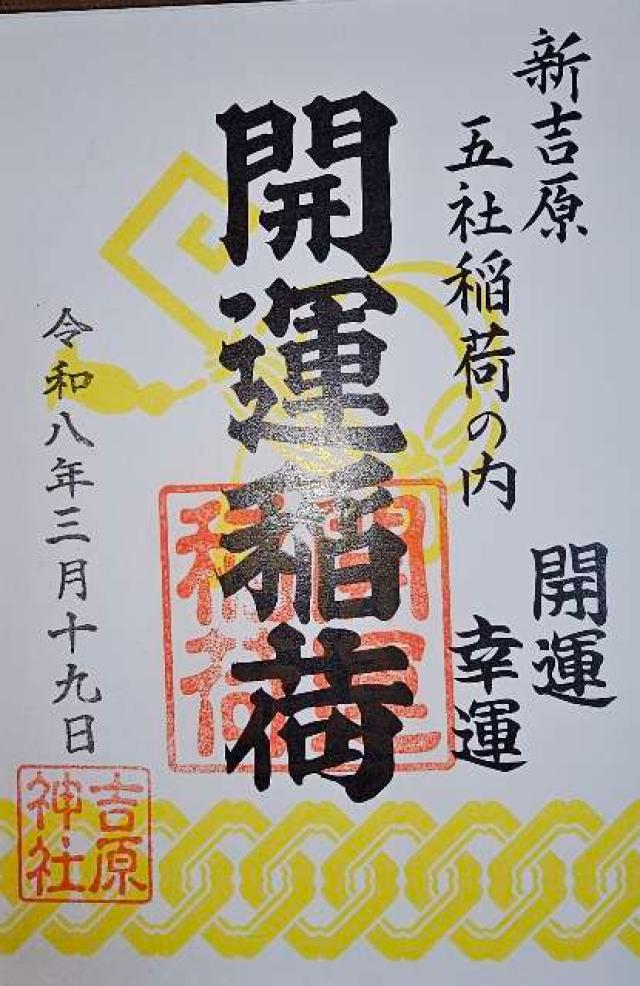 新吉原
五社稲荷の内
開運
幸運
開運稲荷
開運
稲荷
令和八年三月十九日
吉原
神社